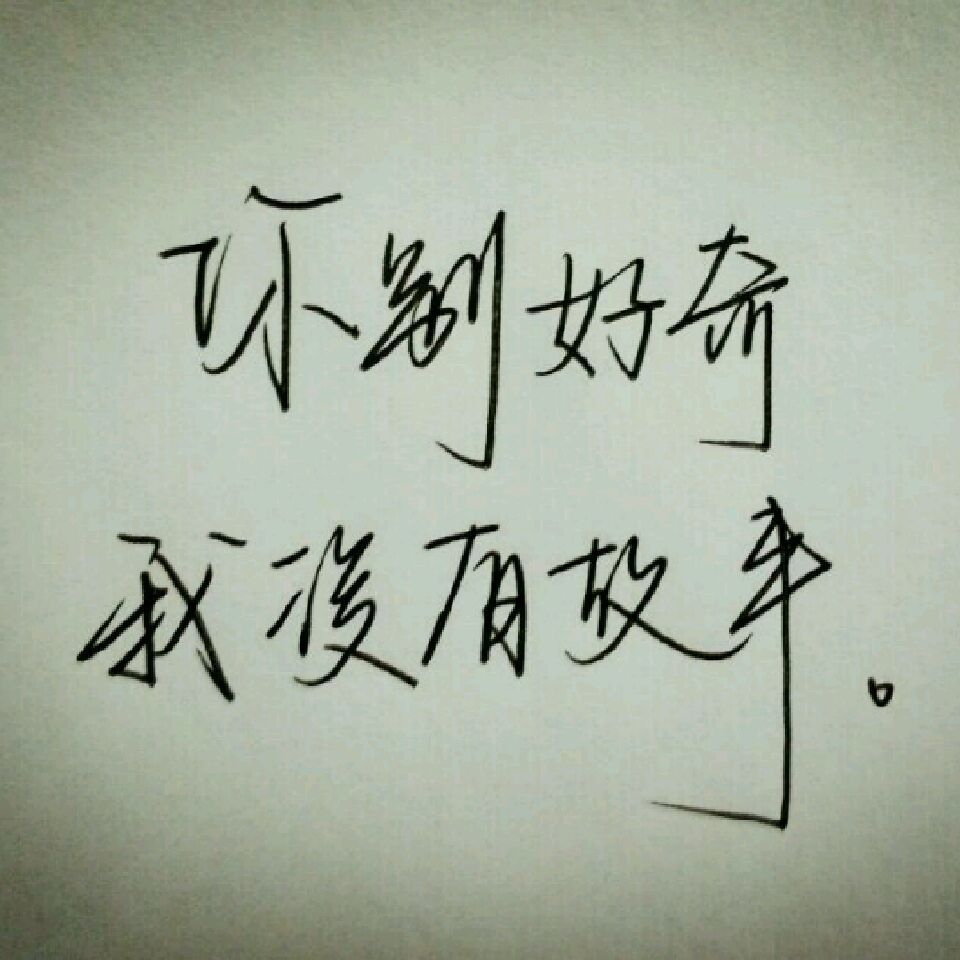 你别好奇
我没有故事。